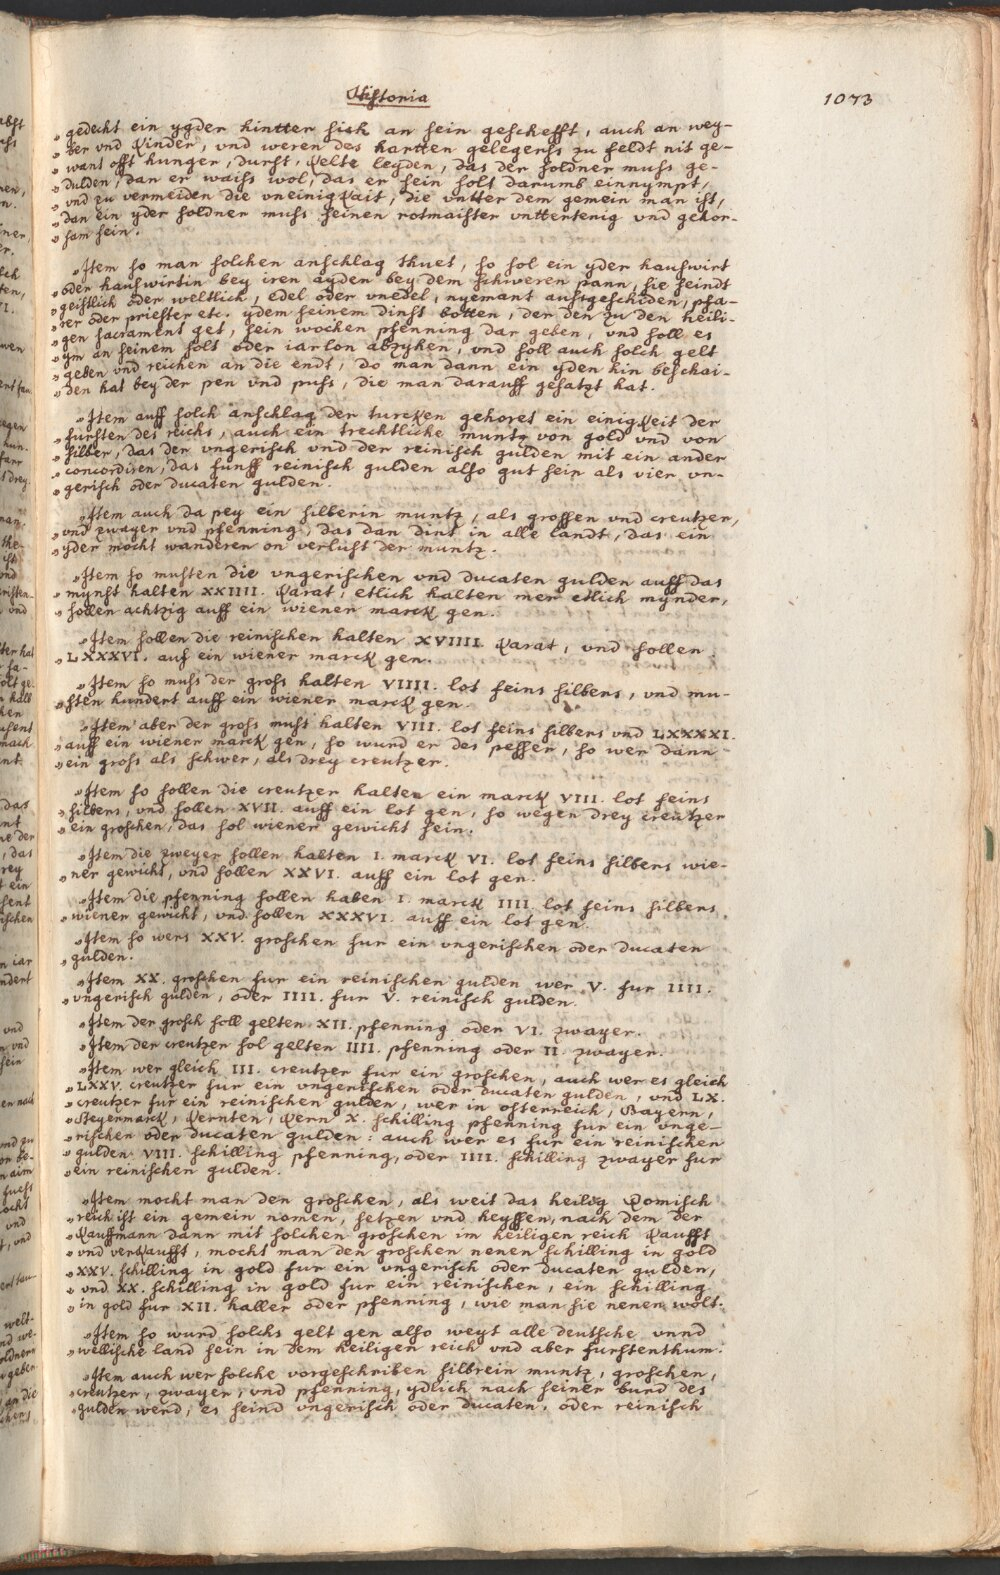 Historia
1073
„ gedecht ein ygder hintter sich an sein geschefft, auch an wey-
„ ber vnd Kinder, vnd weren des hartten gelegerss zu feldt nit ge-
„ want offt hunger, durst, Kelte leyden, das der soldner muss ge-
„ dulden, dan er waiss wol, das er sein solt darumb einnympt,
„ vnd zu vermeiden die vneinigkait, die vntter dem gemein man ist,
„ dan ein yder soldner muss seinen rotmaister vnttertenig vnd gehor-
„ sam sein.
„ Item so man solchen anschlag thuet, so sol ein yder hausswirt
„ oder hausswirtin bey iren ayden bey dem schweren pann, sie seindt
„ geistlich oder weltlich, edel oder vnedel, nyemant aussgeschiden, pfa-
„ rer oder priester etc. ydem seinem dinst botten, der den zu den heili-
„ gen sacrament get, sein wochen pfenning dar geben, vnd soll es
„ ym an seinem solt oder iarlon abzyhen, vnd soll auch solch gelt
„ geben vnd reichen an die endt, do man dann ein yden hin beschai-
„ den hat bey der pen vnd puss, die man darauff gesatzt hat.
„ Item auff solch anschlag der turcken gehoret ein einigkeit der
„ fursten des reichs, auch ein trechtliche muntz von gold vnd von
„ silber, das der vngerisch vnd der reinisch gulden mit ein ander
„ concordiren, das funff reinisch gulden also gut sein als vier vn-
„ gerisch oder ducaten gulden.
„ Item auch da pey ein silberin muntz, als grossen vnd creutzer,
„ vnd zwayer vnd pfenning, das dan dint in alle landt, das ein
„ yder mocht wanderen on verlust der muntz.
„ Item so musten die vngerischen vnd ducaten gulden auff das
„ mynst halten XXIIII. Karat, etlich halten mer etlich mynder,
„ sollen achtzig auff ein wiener marck gen.
„ Item sollen die reinischen halten XVIIII. Karat, vnd sollen
„ LXXXVI. auf ein wiener marck gen.
„ Item so muss der gross halten VIIII. lot feins silbers, vnd mu-
„ sten hundert auff ein wiener marck gen.
„ Item aber der gross must halten VIII. lot feins silbers vnd LXXXXI.
„ auff ein wiener marck gen, so wurd er des pesser, so wer dann
„ ein gross als schwer, als drey creutzer.
„ Item so sollen die creutzer halten ein marck VIII. lot feins
„ silbers, vnd sollen XVII. auff ein lot gen, so wegen drey creutzer
„ ein groschen, das sol wiener gewicht sein.
„ Item die zweyer sollen halten I. marck VI. lot feins silbers wie-
„ ner gewicht, vnd sollen XXVI. auff ein lot gen.
„ Item die pfenning sollen haben I. marck IIII. lot feins silbers
„ wiener gewicht, vnd sollen XXXVI. auff ein lot gen.
„ Item so wers XXV. groschen fur ein vngerischen oder ducaten
„ gulden.
„ Item XX. groschen fur ein reinischen gulden wer V. fur IIII.
„ vngerisch gulden, oder IIII. fur V. reinisch gulden.
„ Item der grosch soll gelten XII. pfenning oder VI. zwayer.
„ Item der creutzer sol gelten IIII. pfenning oder II. zwayer.
„ Item wer gleich III. creutzer fur ein groschen, auch wer es gleich
„ LXXV. creutzer fur ein vngerischen oder ducaten gulden, vnd LX.
„ creutzer fur ein reinischen gulden, wer in osterreich, Bayern,
„ Steyermarck, Kernten, Kern X. schilling pfenning fur ein vnge-
„ rischen oder ducaten gulden: auch wer es fur ein reinischen
„ gulden VIII. schilling pfenning, oder IIII. schilling zwayer fur
„ ein reinischen gulden.
„ Item mocht man den groschen, als weit das heilig Romisch
„ reich ist ein gemein nomen, setzen vnd heyssen, nach dem der
„ Kauffmann dann mit solchen groschen im heiligen reich Kaufft
„ vnd verkaufft, mocht man den groschen nenen schilling in gold
„ XXV. schilling in gold fur ein vngerisch oder ducaten gulden,
„ vnd XX. schilling in gold fur ein reinischen, ein schilling
„ in gold fur XII. haller oder pfenning, wie man sie nenen wolt.
„ Item so wurd solchs gelt gen also weyt alle deutsche vnnd
„ wellische land sein in dem heiligen reich vnd aber furstenthum.
„ Item auch wer solche vorgeschriben silbrein muntz, groschen,
„ creutzer, zwayer, vnd pfenning, ydlich nach seiner burd des
„ gulden werd, es seind vngerisch oder ducaten, oder reinisch